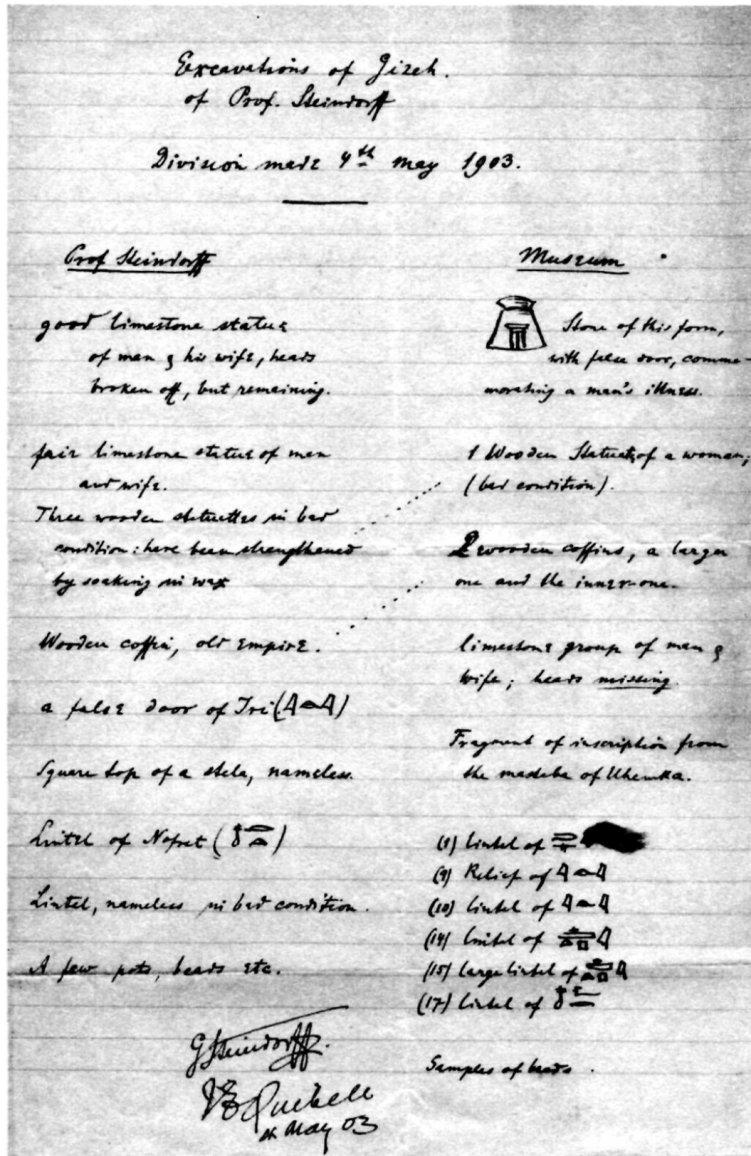 Excavations of Gizeh.
of Prof. Steindorff
Division made 4th May 1903.
Prof Steindorff
good limestone statue
of man & his wife, heads
broken off, but remaining.
fair limestone statue of man
and wife.
Three wooden statuettes in bad
condition: have been strengthened
by soaking in wax
Wooden coffin, old Empire.
a false door of Iri (𓇋𓂋𓇋)
Square top of a stela, nameless.
Lintel of Nofret (𓄤𓂋𓏏)
Lintel, nameless in bad condition.
A few pots, beads etc.
Museum
Stone of this form,
with false door, comme-
morating a man's illness.
1 Wooden Statuette of a woman;
(bad condition).
2 wooden coffins, a larger
one and the inner-one.
limestone group of man &
wife; heads missing.
Fragment of inscription from
the mastaba of Uhemka.
(8) lintel of
(9) Relief of 𓇋𓂋𓇋
(10) lintel of 𓇋𓂋𓇋
(14) lintel of
(15) large lintel of
(17) lintel of
Samples of beads.
G Steindorff.
JE Quibell
4 May 03